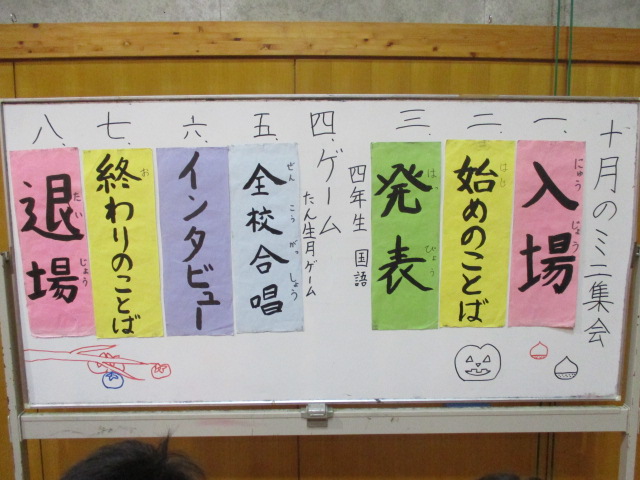 十月のミニ集会
一、入場
にゅうじょう
二、始めのことば
はじ
三、発表
はっぴょう
四年生 国語
四、ゲーム
たん生月ゲーム
五、全校合唱
ぜんこうがっしょう
六、インタビュー
七、終わりのことば
お
八、退場
たいじょう